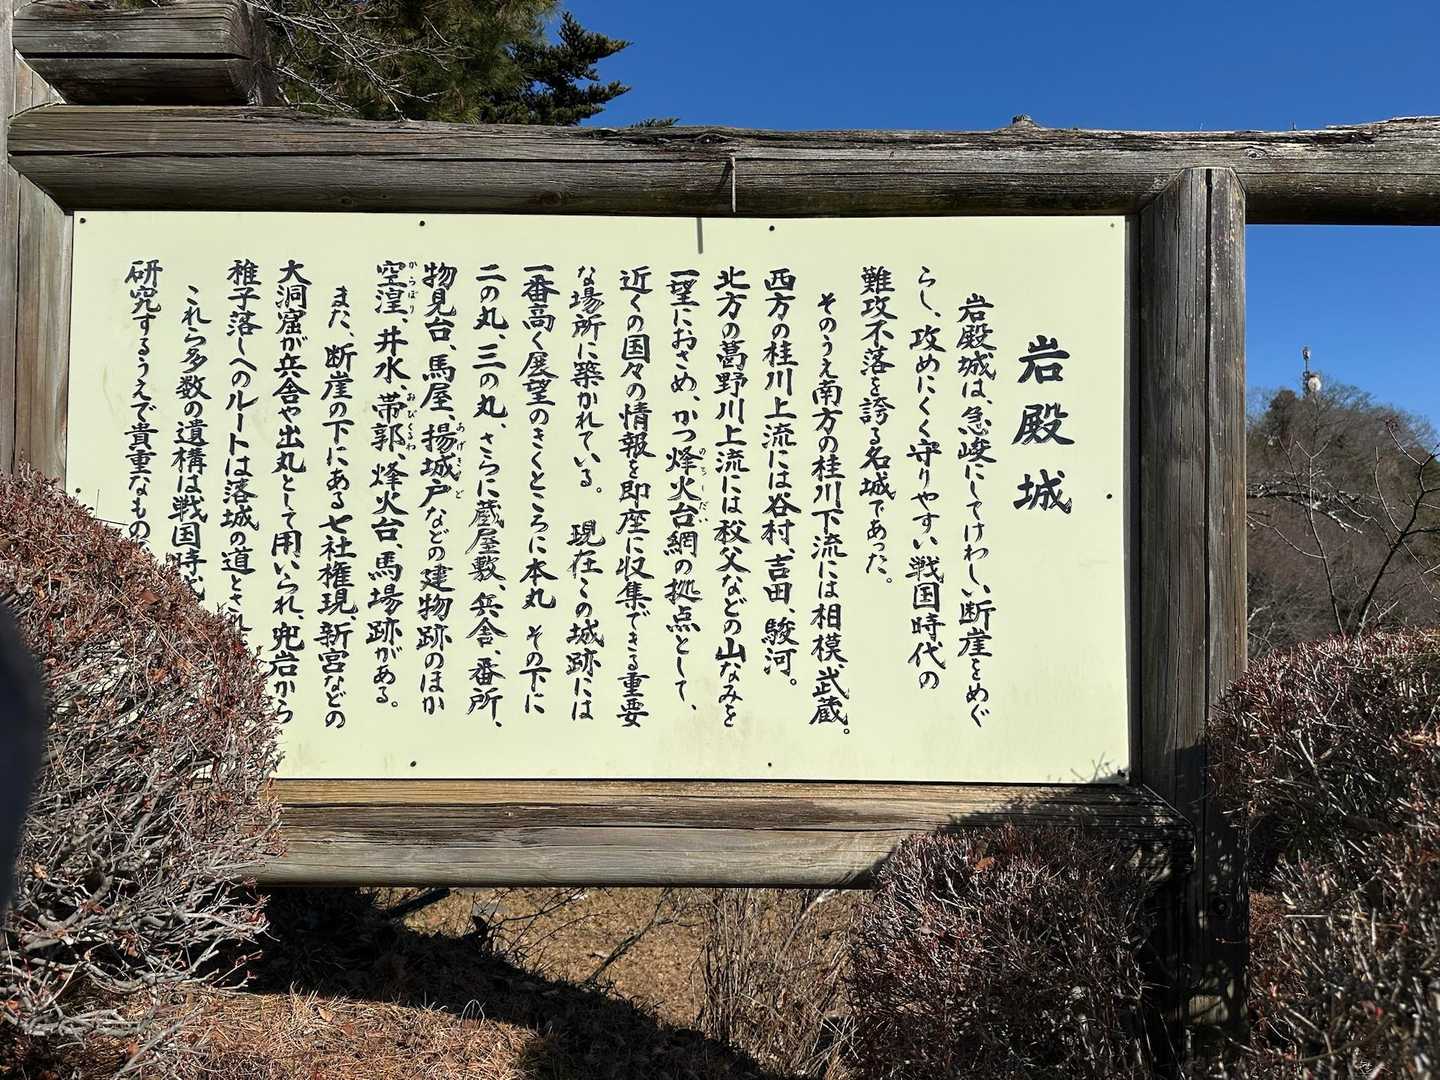 岩殿城
岩殿城は、急峻にしてけわしい断崖をめぐ
らし、攻めにくく守りやすい戦国時代の
難攻不落を誇る名城であった。
そのうえ南方の桂川下流には相模、武蔵。
西方の桂川上流には谷村、吉田、駿河。
北方の葛野川上流には秩父などの山なみを
一望におさめ、かつ烽火台網の拠点として、
のろしだい
近くの国々の情報を即座に収集できる重要
な場所に築かれている。 現在この城跡には
一番高く展望のきくところに本丸 その下に
二の丸、三の丸、さらに蔵屋敷、兵舎、番所、
物見台、馬屋、揚城戸などの建物跡のほか
あげきど
空湟、井水、帯郭、烽火台、馬場跡がある。
からぼり
おびくるわ
また、断崖の下にある七社権現、新宮などの
大洞窟が兵舎や出丸として用いられ、兜岩から
稚子落しへのルートは落城の道とされ
これら多数の遺構は戦国時
研究するうえで貴重なもの